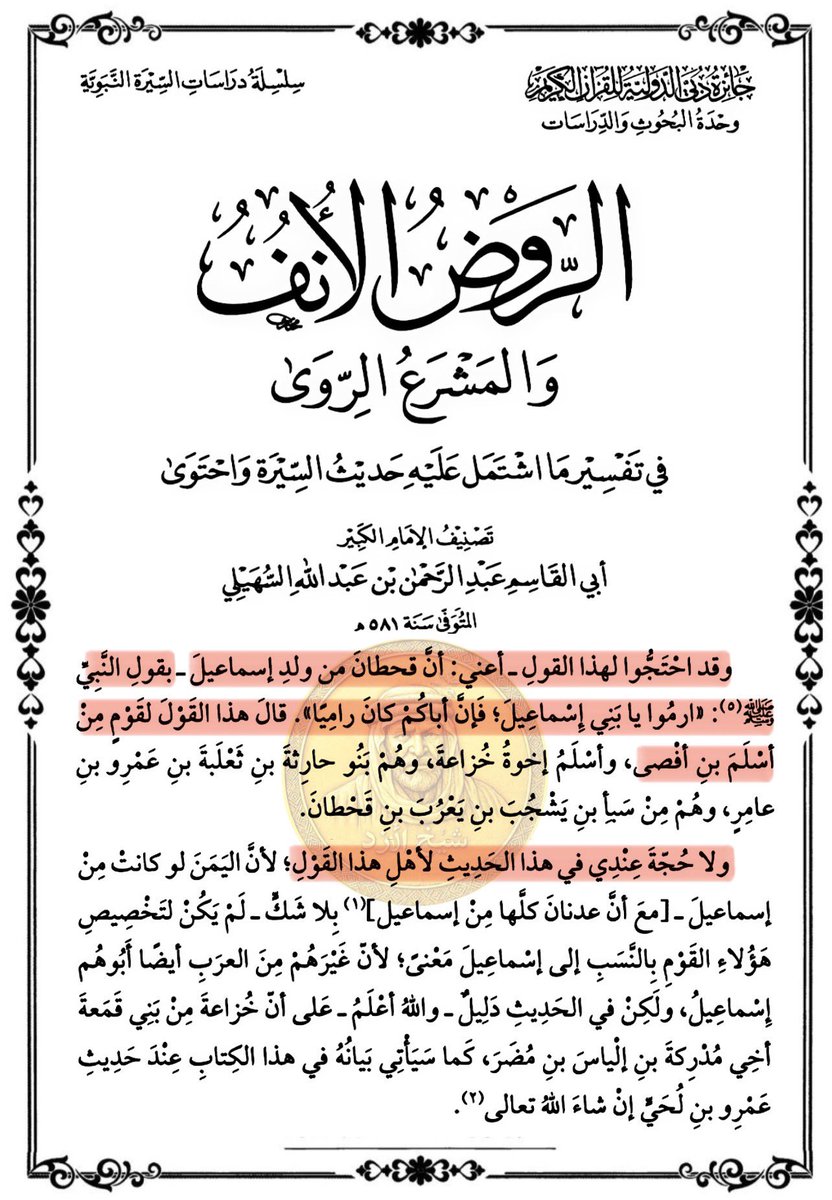 جَائِزَةُ دُبَيّ الدَّوْلِيَّةُ لِلْقُرْآنِ الكَرِيم
وَحْدَةُ البُحُوثِ وَالدِّرَاسَات
سِلْسِلَةُ دِرَاسَاتِ السِّيْرَةِ النَّبَوِيَّةِ
الرَّوْضُ الأُنُفُ
وَالمَشْرَعُ الرِّوَىٰ
فِي تَفْسِيْرِ مَا اشْتَمَلَ عَلَيْهِ حَدِيْثُ السِّيْرَةِ وَاحْتَوَىٰ
تَصْنِيْفُ الإِمَامِ الكَبِيْرِ
أَبِي القَاسِمِ عَبْدِ الرَّحْمٰنِ بْنِ عَبْدِ اللهِ السُّهَيْلِي
المُتَوَفَّىٰ سَنَة ٥٨١ ه
وقد احْتَجُّوا لهذا القولِ ـ أعني: أنَّ قحطانَ من ولدِ إسماعيلَ ـ بقولِ النَّبِيِّ
ﷺ(٥): «ارمُوا يا بَنِي إِسْمَاعِيلَ؛ فإنَّ أباكُمْ كانَ رامِيًا». قالَ هذا القَوْلَ لقَوْمٍ مِنْ
أسْلَمَ بنِ أفْصى، وأسْلَمُ إخوةُ خُزاعةَ، وهُمْ بَنُو حارِثةَ بنِ ثَعْلَبةَ بنِ عَمْرِو بنِ
عامِرٍ، وهُمْ مِنْ سَبَأِ بنِ يَشْجُبَ بنِ يَعْرُبَ بنِ قَحْطانَ.
ولا حُجّةَ عِنْدِي في هذا الحَدِيثِ لأهْلِ هذا القَوْلِ؛ لأنَّ اليَمَنَ لو كانتْ مِنْ
إسماعيلَ ـ [معَ أنَّ عدنانَ كلَّها مِنْ إسماعيل](١) بِلا شَكٍّ ـ لَمْ يَكُنْ لتَخْصِيصِ
هَؤُلاءِ القَوْمِ بِالنَّسَبِ إلى إسْماعِيلَ مَعْنىً؛ لأنّ غَيْرَهُمْ مِنَ العرَبِ أيضًا أَبُوهُم
إِسْماعِيلُ، ولَكِنْ في الحَدِيثِ دَلِيلٌ ـ واللهُ أعْلَمُ ـ عَلى أنّ خُزاعةَ مِنْ بَنِي قَمَعةَ
أخِي مُدْرِكةَ بنِ إلْياسَ بنِ مُضَرَ، كَما سَيَأْتِي بَيانُهُ في هذا الكِتابِ عِنْدَ حَدِيثِ
عَمْرِو بنِ لُحَيٍّ إنْ شاءَ اللهُ تعالى(٢).
شيخ الازد